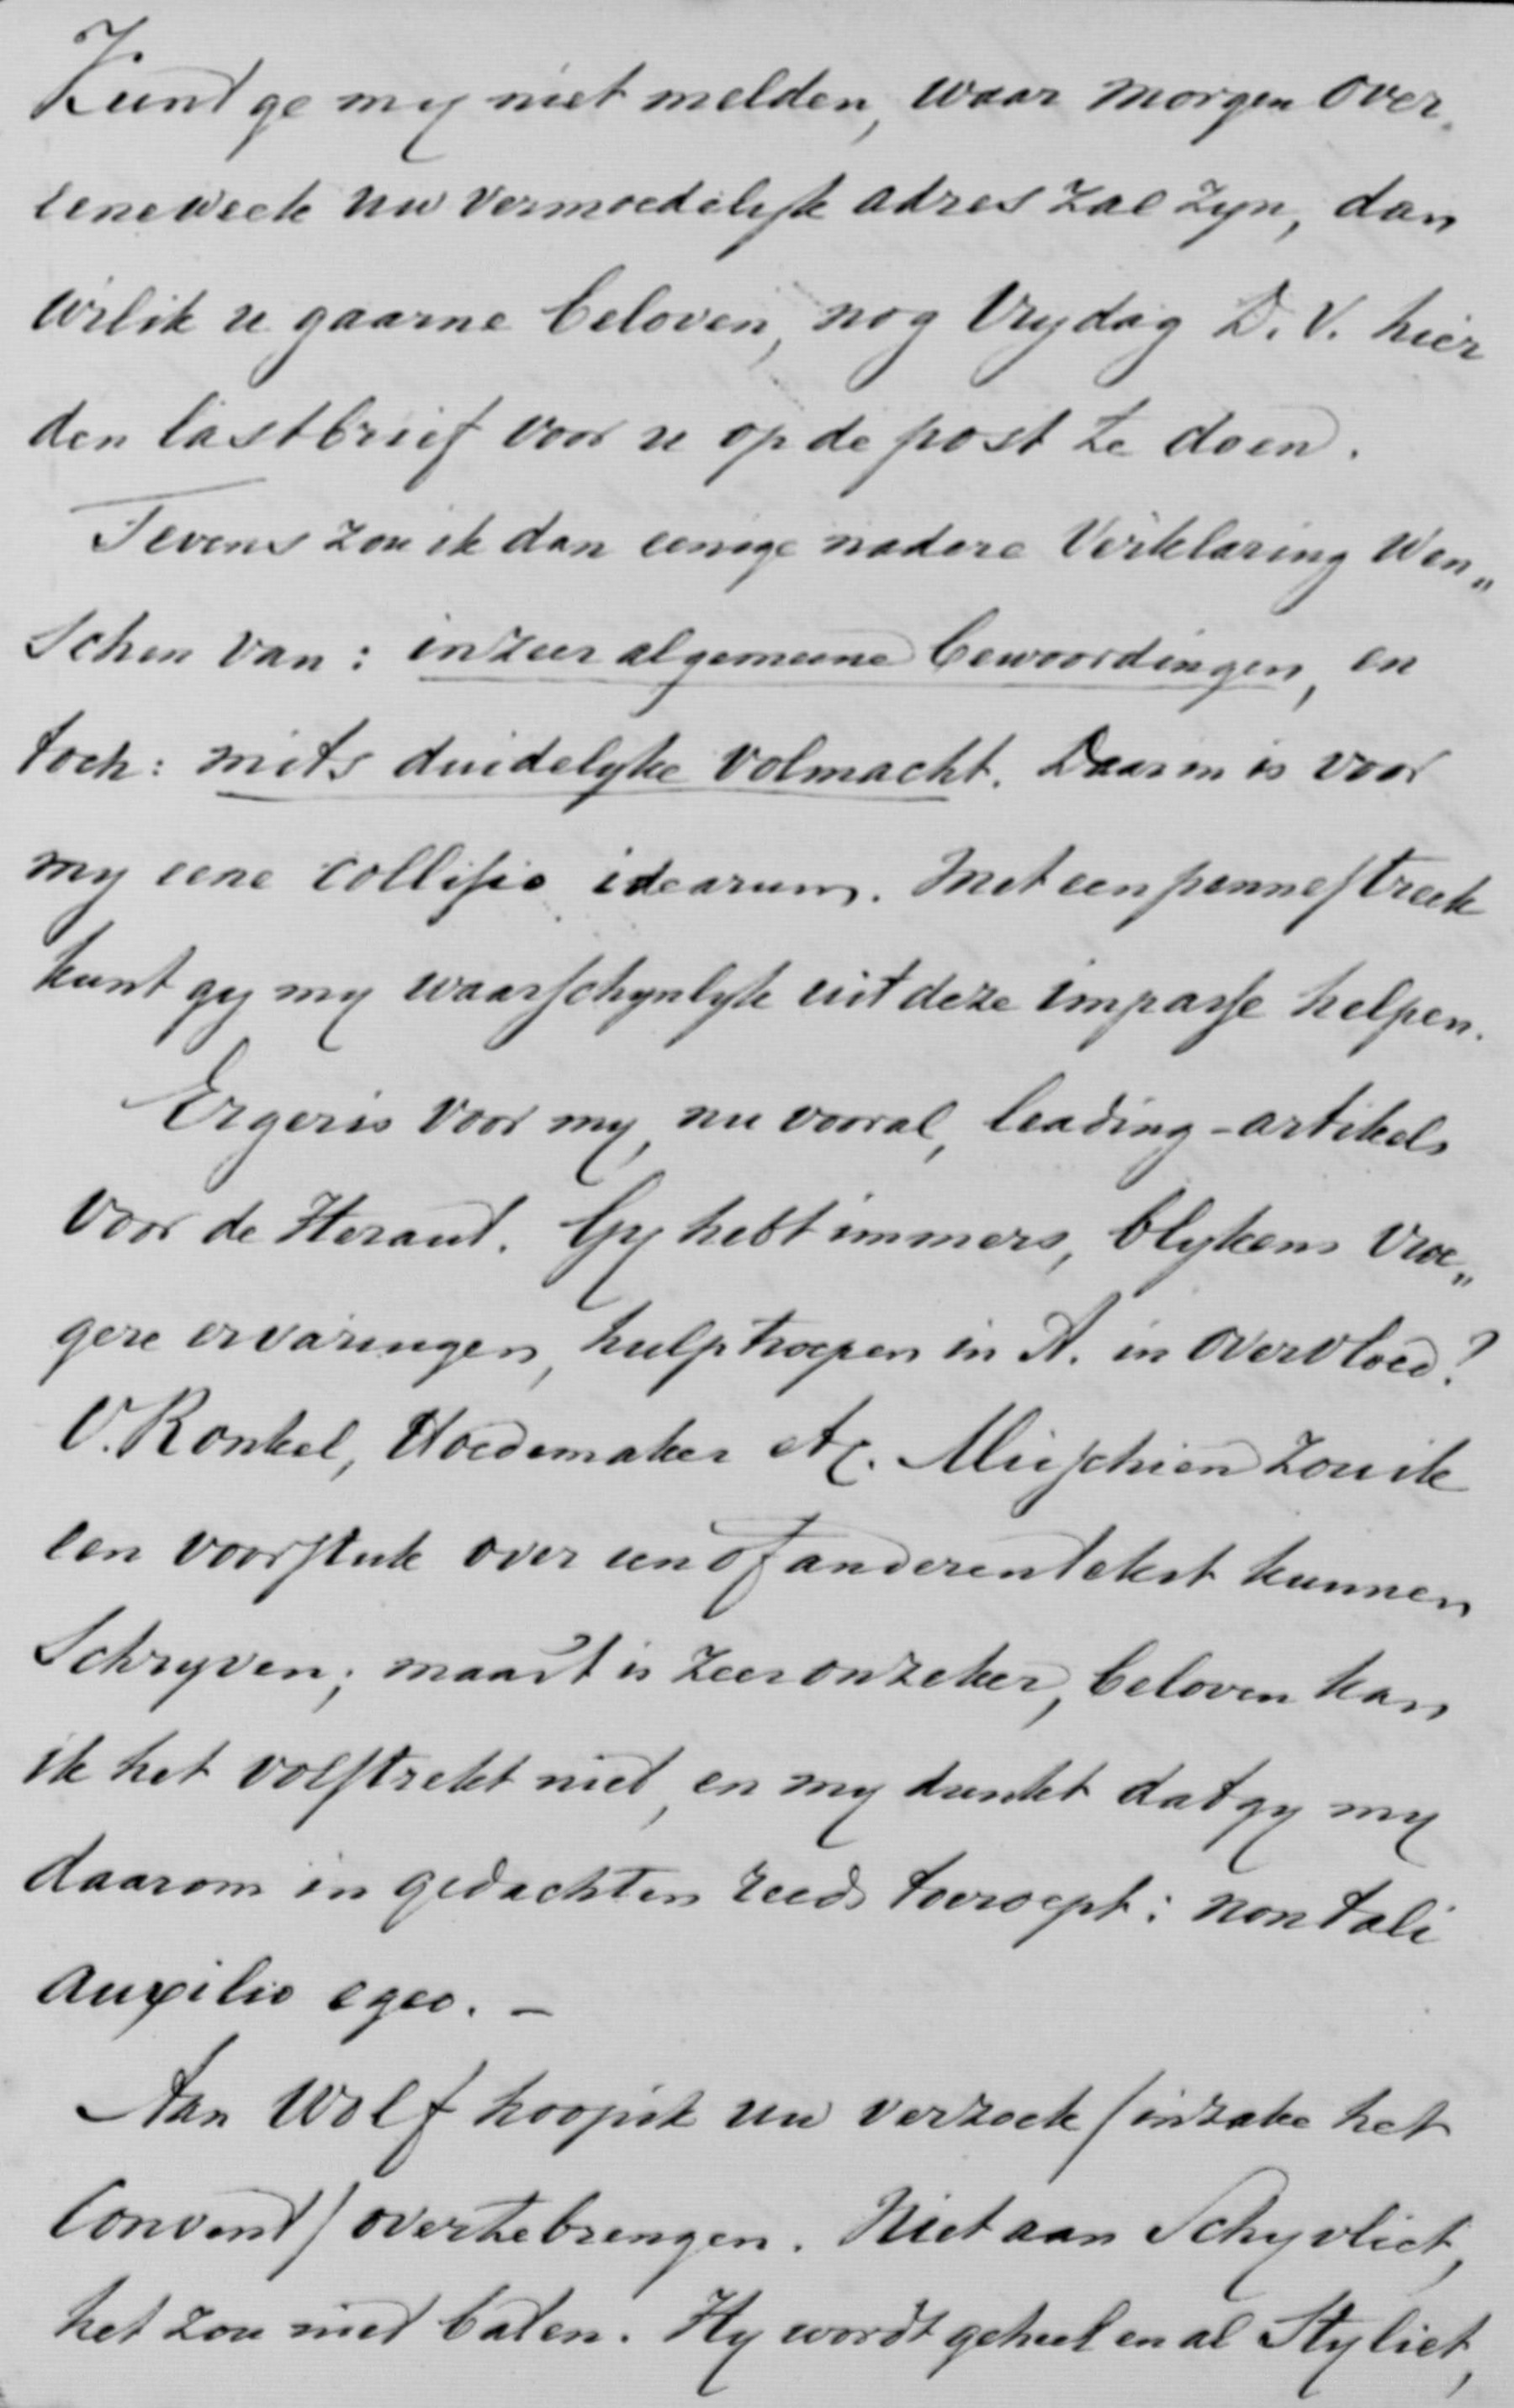 Kunt ge my niet melden, waar morgen over
eene week uw vermoedelyk adres zal zyn, dan
wil ik u gaarne beloven, nog Vrydag D.V. hier
den lastbrief voor u op de post te doen.
Tevens zou ik dan eenige nadere Verklaring Wen„
schen van: in zeer algemeene bewoordingen, en
toch: mits duidelyke volmacht. Daarin is voor
my eene collisio idearum. Met een pennestreek
kunt gy my waarschynlyk uit deze impasse helpen.
Erger is voor my, nu vooral, leading-artikels
voor de Heraut. Gy hebt immers, blykens vroe„
gere ervaringen, hulptroepen in A. in overvloed?
V. Ronkel, Hoedemaker etc. Misschien zou ik
een voorstuk over een of anderen tekst kunnen
schryven; maar 't is zeer onzeker, beloven kan
ik het volstrekt niet, en my dunkt dat gy my
daarom in gedachten reeds toeroept: non tali
auxilio egeo. –
Aan Wolf hoop ik uw verzoek / inzake het
Convent / over te brengen. Niet aan Schyvliet,
het zou niet baten. Hy wordt geheel en al Styliet,